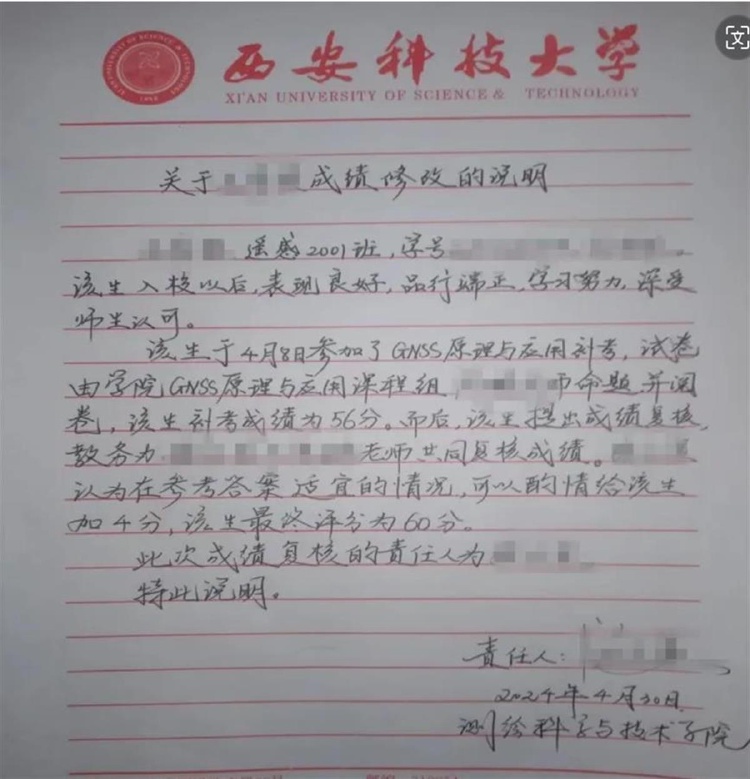 文
西安科技大学
XI'AN UNIVERSITY OF SCIENCE & TECHNOLOGY
关于 成绩修改的说明
遥感2001班,学号
该生入校以后,表现良好,品行端正,学习努力,深受
师生认可。
该生于4月8日参加了GNSS原理与应用补考,试卷
由学院GNSS原理与应用课程组 命题并阅
卷,该生补考成绩为56分。而后,该生提出成绩复核,
教务为 老师共同复核成绩。
认为在参考答案适宜的情况,可以酌情给该生
加4分,该生最终评分为60分。
此次成绩复核的责任人为 。
特此说明。
责任人:
2024年4月30日
测绘科学与技术学院